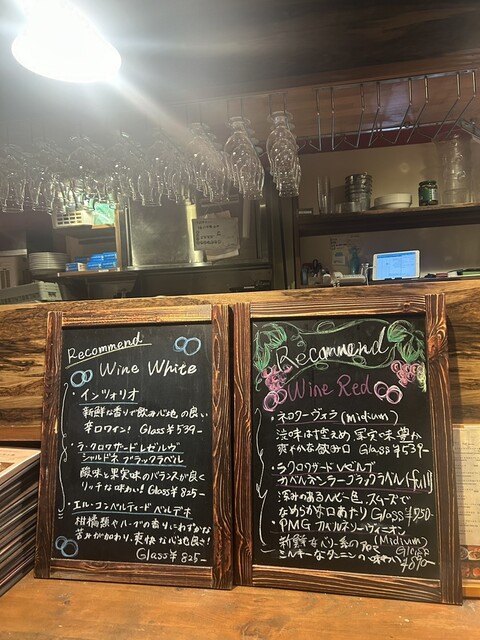 Recommend
Wine White
・インヅォリオ
新鮮な香りで飲み心地の良い
辛口ワイン! Glass¥539-
・ラ・クロワザード レゼルヴ
シャルドネ ブラックラベル
酸味と果実味のバランスが良く
リッチな味わい! Glass¥825-
・エル・コンベルティード ベルデホ
柑橘類やハーブの香りにわずかな
苦みが加わり、爽快な心地良さ!
Glass¥825-
Recommend
Wine Red
・ネロダーヴォラ(Midium)
渋味は控えめ、果実味豊か
爽やかな飲み口 Glass¥539-
・ラクロワザード レゼルブ
カベルネシラーブラックラベル(full)
深みのあるルビー色、スムーズで
なめらかな口あたり Glass¥950-
・PMG カベルネソーヴィニオン
(Midium)
新鮮なベリー系のアロマ
Glass
ミルキーなタンニンの味わい
¥890-